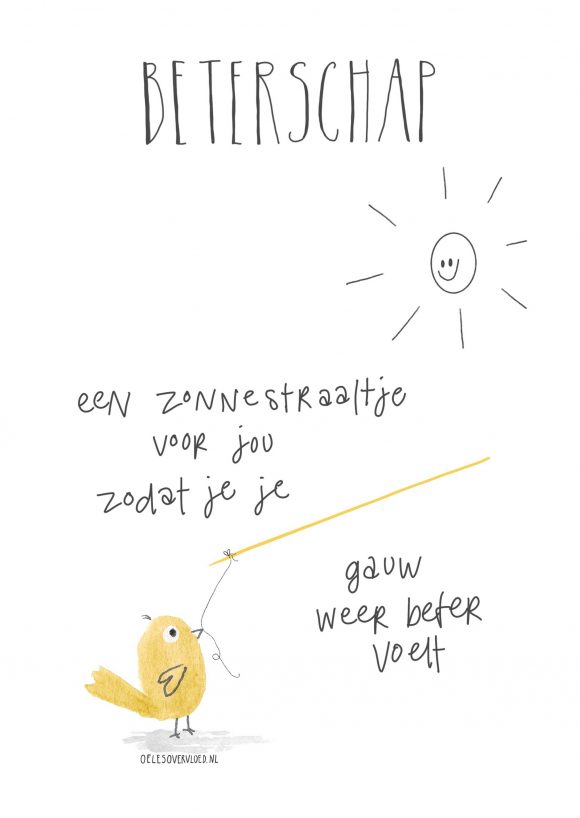 BETERSCHAP
een zonnestraaltje
voor jou
zodat je je
gauw
weer beter
voelt
OELESOVERVLOED.NL